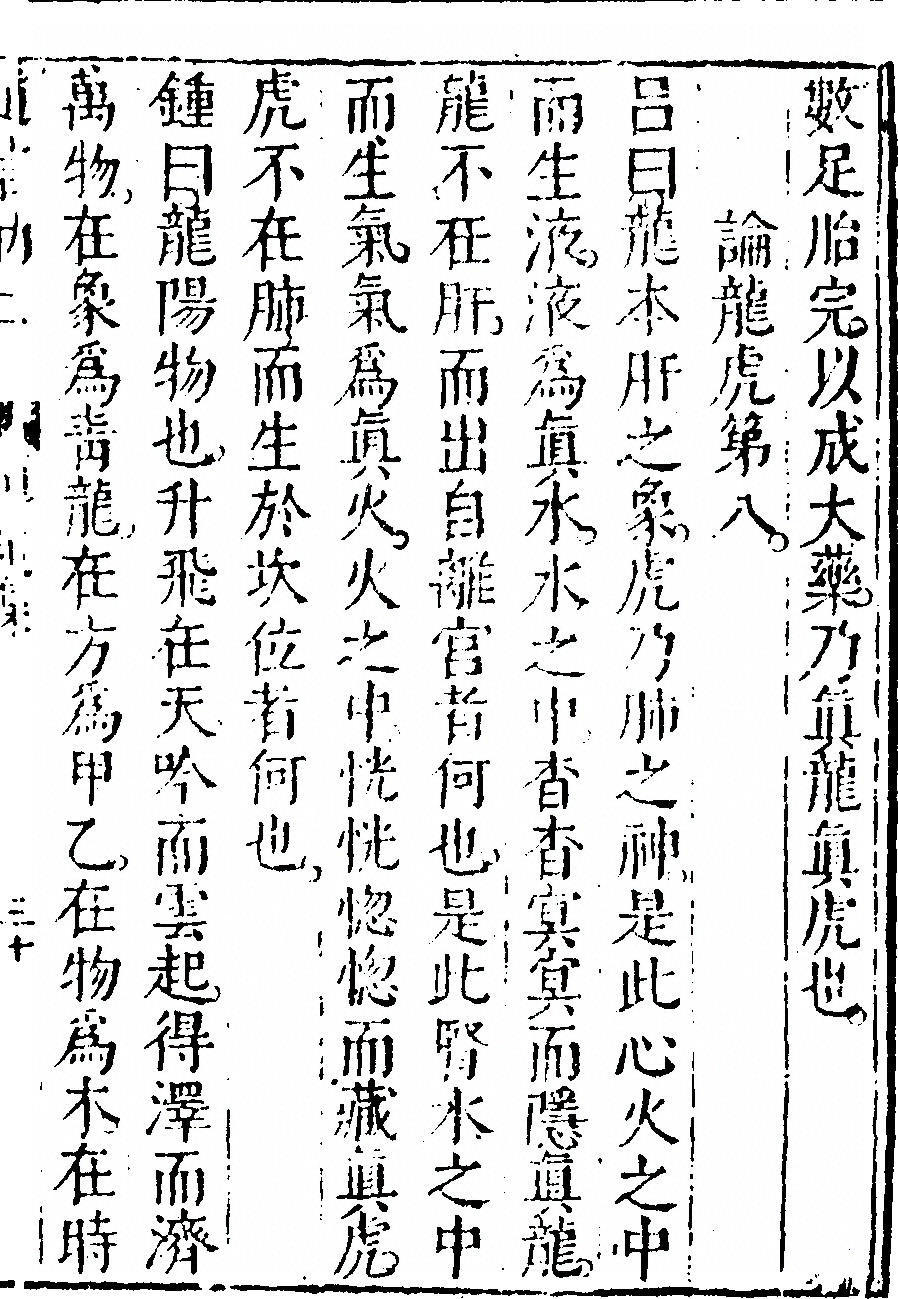 數足胎完以成大藥乃眞龍眞虎也
論龍虎第八
呂曰龍本肝之象虎乃肺之神是此心火之中
而生液液爲眞水水之中杳杳冥冥而隱眞龍
龍不在肝而出自離宮者何也是此腎水之中
而生氣氣爲眞火火之中恍恍惚惚而藏眞虎
虎不在肺而生於坎位者何也
鍾曰龍陽物也升飛在天吟而雲起得澤而濟
萬物在象爲靑龍在方爲甲乙在物爲木在時
三十